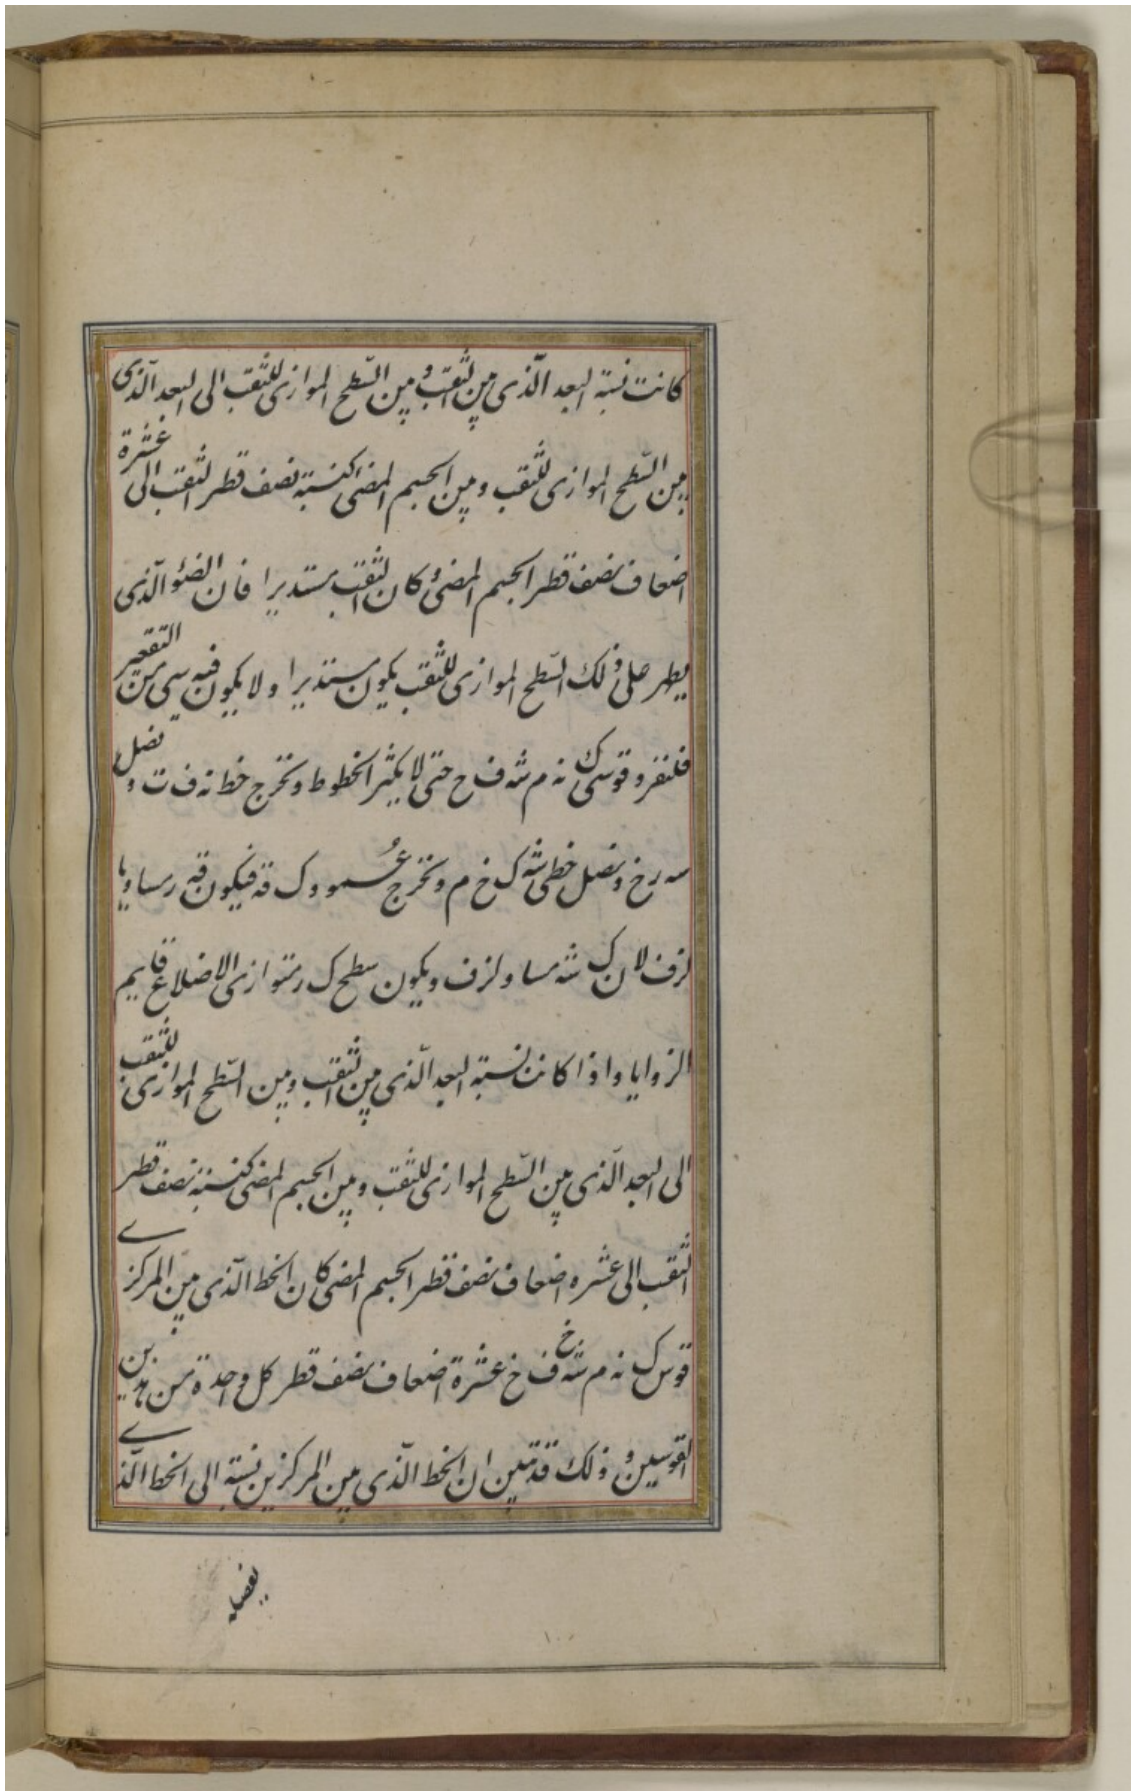 كانت نسبة البعد الّذى بين الثقب وبين السّطح الموازى للثقب الى البعد الّذى
بين السّطح الموازى للثقب وبين الجسم المضئ كنسبة نصف قطر الثقب الى عشرة
اضعاف نصف قطر الجسم المضئ وكان الثقب مستديرا فان الضوء الّذى
يظهر على ذلك السّطح الموازى للثقب يكون مستديرا ولا يكون فيه شى من التقعير
فلنفرد قوسى ك نه م شه ف ح حتى لا يكثر الخطوط ونخرج خط نه ف ت ونصل
سه ر خ ونصل خطى شه ك خ م ونخرج عمود ك قه فيكون قه ر مساويا
لزف لان ك شه مساو لزف ويكون سطح ك ر متوازى الاضلاع قايم
الزوايا واذا كانت نسبة البعد الّذى بين الثقب وبين السّطح الموازى للثقب
الى البعد الّذى بين السّطح الموازى للثقب وبين الجسم المضى كنسبة نصف قطر
الثقب الى عشره اضعاف نصف قطر الجسم المضى كان الخط الّذى بين المركزى
قوس ك نه م شه ف خ عشرة اضعاف نصف قطر كل واحدة من هذين
القوسين وذلك قد تبين ان الخط الّذى بين المركزين نسبته الى الخط الّذى
يفصله